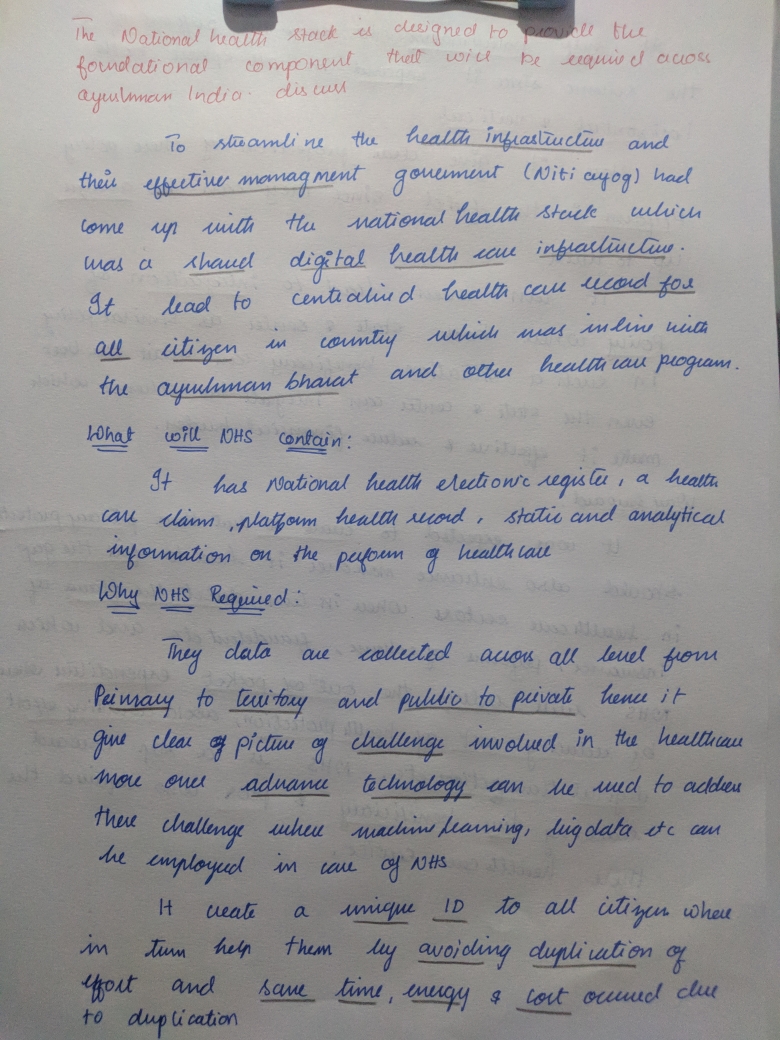 The National health stack is designed to provide the
foundational component that will be required across
ayushman India. discuss
To streamline the health infrastructure and
their effective managment goverment (Niti ayog) had
come up with the national health stack which
was a shared digital health care infrastructure.
It lead to centralised health care record for
all citizen in country which was inline with
the ayushman bharat and other healthcare program.
What will NHS contain:
It has National health electronic register, a health
care claim, platform health record, static and analytical
information on the perform of healthcare
Why NHS Required:
They data are collected across all level from
Primary to territory and public to private hence it
give clear of picture of challenge involved in the healthcare
more over advance technology can be used to address
there challenge where machine learning, big data etc can
be employed in case of NHS
It create a unique ID to all citizen where
in turn help them by avoiding duplication of
effort and save time, energy & cost occured due
to duplication